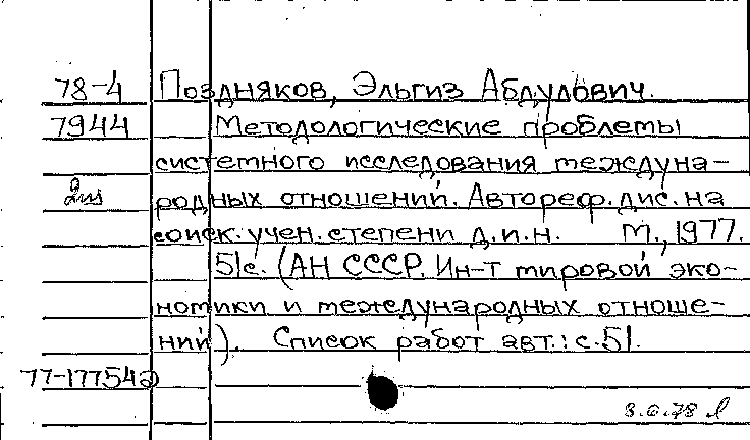 78-4 Поздняков, Эльгиз Абдулович.
7944 Методологические проблемы
системного исследования междуна-
родных отношений. Автореф. дис. на
соиск. учен. степени д.и.н. М., 1977.
51с. (АН СССР. Ин-т мировой эко-
номики и международных отноше-
ний). Список работ авт.: с.51.
77-17754а